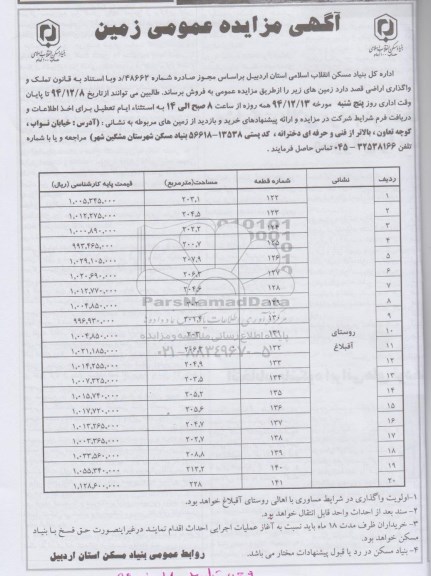 آگهی مزایده عمومی زمین
اداره کل بنیاد مسکن انقلاب اسلامی استان اردبیل براساس مجوز صادره شماره ۳۸۶۶۳/د وبا استناد به قانون تملک و
واگذاری اراضی قصد دارد زمین های زیر را ازطریق مزایده عمومی به فروش برساند. طالبین می توانند ازتاریخ ۹۴/۱۲/۸ تا پایان
وقت اداری روز پنج شنبه مورخه ۹۴/۱۲/۱۳ همه روزه از ساعت ۸ صبح الی ۱۴ به استثناء ایام تعطیل برای اخذ اطلاعات و
دریافت فرم شرایط شرکت در مزایده و ارائه پیشنهادهای خرید و بازدید از زمین های مربوطه به نشانی : (آدرس : خیابان نواب ،
کوچه تعاون ، بالاتر از فنی و حرفه ای دخترانه ، کد پستی ۱۳۵۳۸-۵۶۶۱۸ بنیاد مسکن شهرستان مشگین شهر) مراجعه و یا با شماره
تلفن ۳۲۵۳۸۱۶۶ -۰۴۵ تماس حاصل فرمایند .
ردیف نشانی شماره قطعه مساحت(مترمربع) قیمت پایه کارشناسی (ریال)
۱ ۱۲۲ ۲۰۳,۱ ۱,۰۰۵,۳۴۵,۰۰۰
۲ ۱۲۳ ۲۰۴,۵ ۱,۰۱۲,۲۷۵,۰۰۰
۳ ۱۲۴ ۲۰۲,۲ ۱,۰۰۰,۸۹۰,۰۰۰
۴ ۱۲۵ ۲۰۰,۷ ۹۹۳,۴۶۵,۰۰۰
۵ ۱۲۶ ۲۰۷,۹ ۱,۰۲۹,۱۰۵,۰۰۰
۶ ۱۲۷ ۲۰۶,۲ ۱,۰۲۰,۶۹۰,۰۰۰
۷ ۱۲۸ ۲۰۴,۶ ۱,۰۱۲,۷۷۰,۰۰۰
۸ ۱,۰۰۴,۸۵۰,۰۰۰
۹ ۱۳۰ ۹۹۶,۹۳۰,۰۰۰
۱۰ ۱۳۱ ۱,۰۰۴,۸۵۰,۰۰۰
۱۱ روستای آقبلاغ ۱۳۲ ۱,۰۲۱,۱۸۵,۰۰۰
۱۲ ۱۳۳ ۲۰۴,۹ ۱,۰۱۴,۲۵۵,۰۰۰
۱۳ ۱۳۴ ۲۰۳,۵ ۱,۰۰۷,۳۲۵,۰۰۰
۱۴ ۱۳۵ ۲۰۵,۲ ۱,۰۱۵,۷۴۰,۰۰۰
۱۵ ۱۳۶ ۲۰۵,۶ ۱,۰۱۷,۷۲۰,۰۰۰
۱۶ ۱۳۷ ۲۰۴,۷ ۱,۰۱۳,۲۶۵,۰۰۰
۱۷ ۱۳۸ ۲۰۲,۷ ۱,۰۰۳,۳۶۵,۰۰۰
۱۸ ۱۳۹ ۲۰۸,۸ ۱,۰۳۳,۵۶۰,۰۰۰
۱۹ ۱۴۰ ۲۱۳,۲ ۱,۰۵۵,۳۴۰,۰۰۰
۲۰ ۱۴۱ ۲۲۸ ۱,۱۲۸,۶۰۰,۰۰۰
ParsNamadData
۰۲۱-۸۸۳۴۹۶۷۰-۵
۱-اولویت واگذاری در شرایط مساوی با اهالی روستای آقبلاغ خواهد بود.
۲- سند بعد از احداث واحد قابل انتقال خواهد بود.
۳- خریداران ظرف مدت ۱۸ ماه باید نسبت به آغاز عملیات اجرایی احداث اقدام نمایند درغیراینصورت حق فسخ با بنیاد
مسکن خواهد بود.
۴- بنیاد مسکن در رد یا قبول پیشنهادات مختار می باشد.
روابط عمومی بنیاد مسکن استان اردبیل